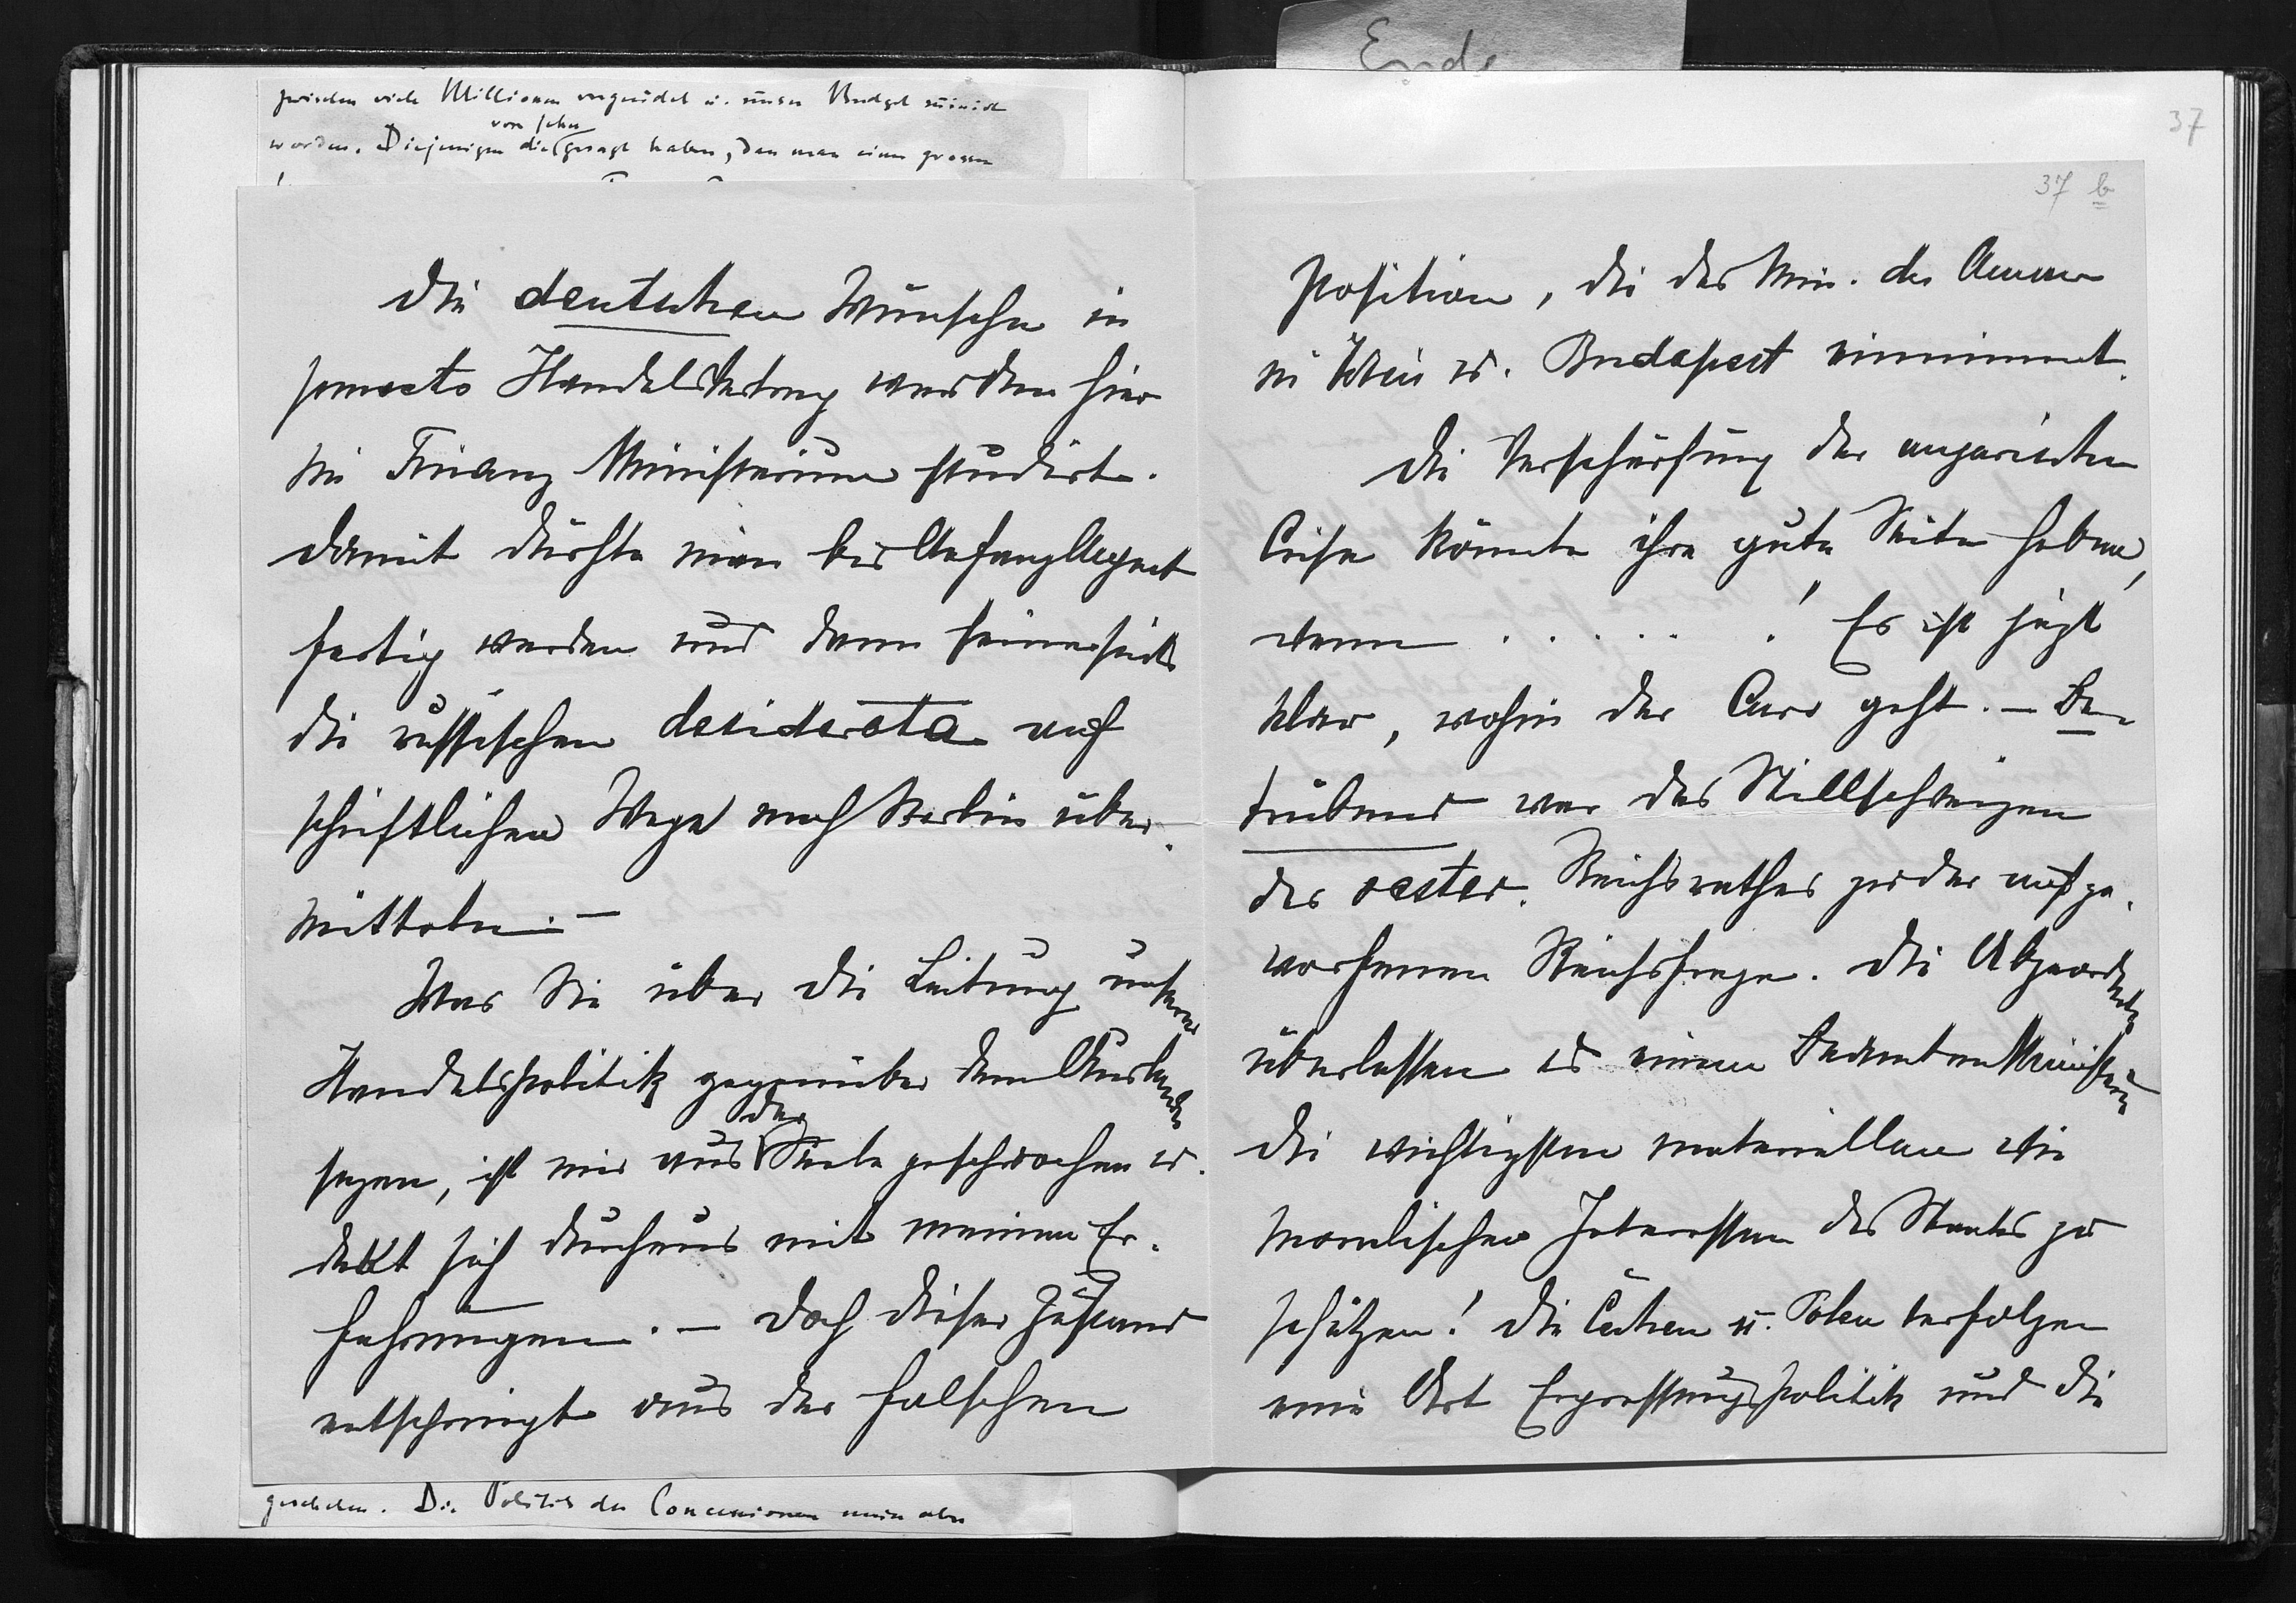 Ende
37
zwischen viele Millionen vergeudet u. unser Budget ruinirt
von jeher
worden. Diejenigen die gesagt haben, dass man einen grossen
37 b
Die deutschen Wünsche in
puncto Handelsvertrag werden hier
im Finanz Ministerium studirt.
Damit dürfte man bis Anfang August
fertig werden und dann seinerseits
die russischen desiderata auf
schriftlichem Wege nach Berlin über-
mitteln. —
Was Sie über die Leitung unserer
Handelspolitik gegenüber dem Auslande
sagen, ist mir aus der Seele gesprochen u.
dekt sich durchaus mit meinen Er-
fahrungen. — Doch dieser Zustand
entspringt aus der falschen
Position, die der Min. des Aeussern
in Wien u. Budapest einnimmt.
Die Verschärfung der ungarischen
Crise könnte ihre gute Seite haben,
wenn . . . . . ! Es ist jezt
klar, wohin der Curs geht. — Be-
trübend war das Stillschweigen
des oester. Reichsrathes zu der aufge-
worfenen Reichsfrage. Die Abgeordneten
überlassen es einem Beamten Ministerium
die wichtigsten materiellen wie
moralischen Interessen des Staates zu
schützen! Die Čechen u. Polen verfolgen
eine Art Erpressungspolitik und die
geschehen. Die Politik der Concessionen muss aber